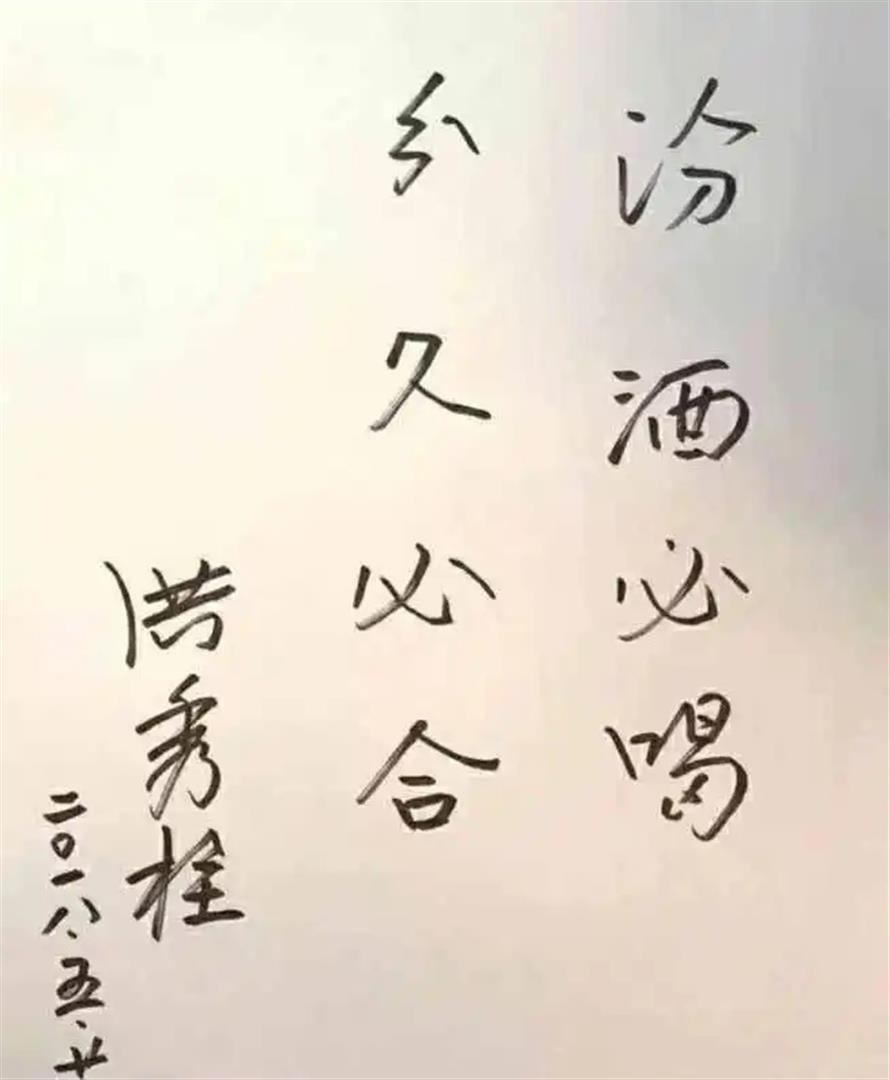 汾酒必喝
分久必合
洪秀柱
二〇一八、五、廿